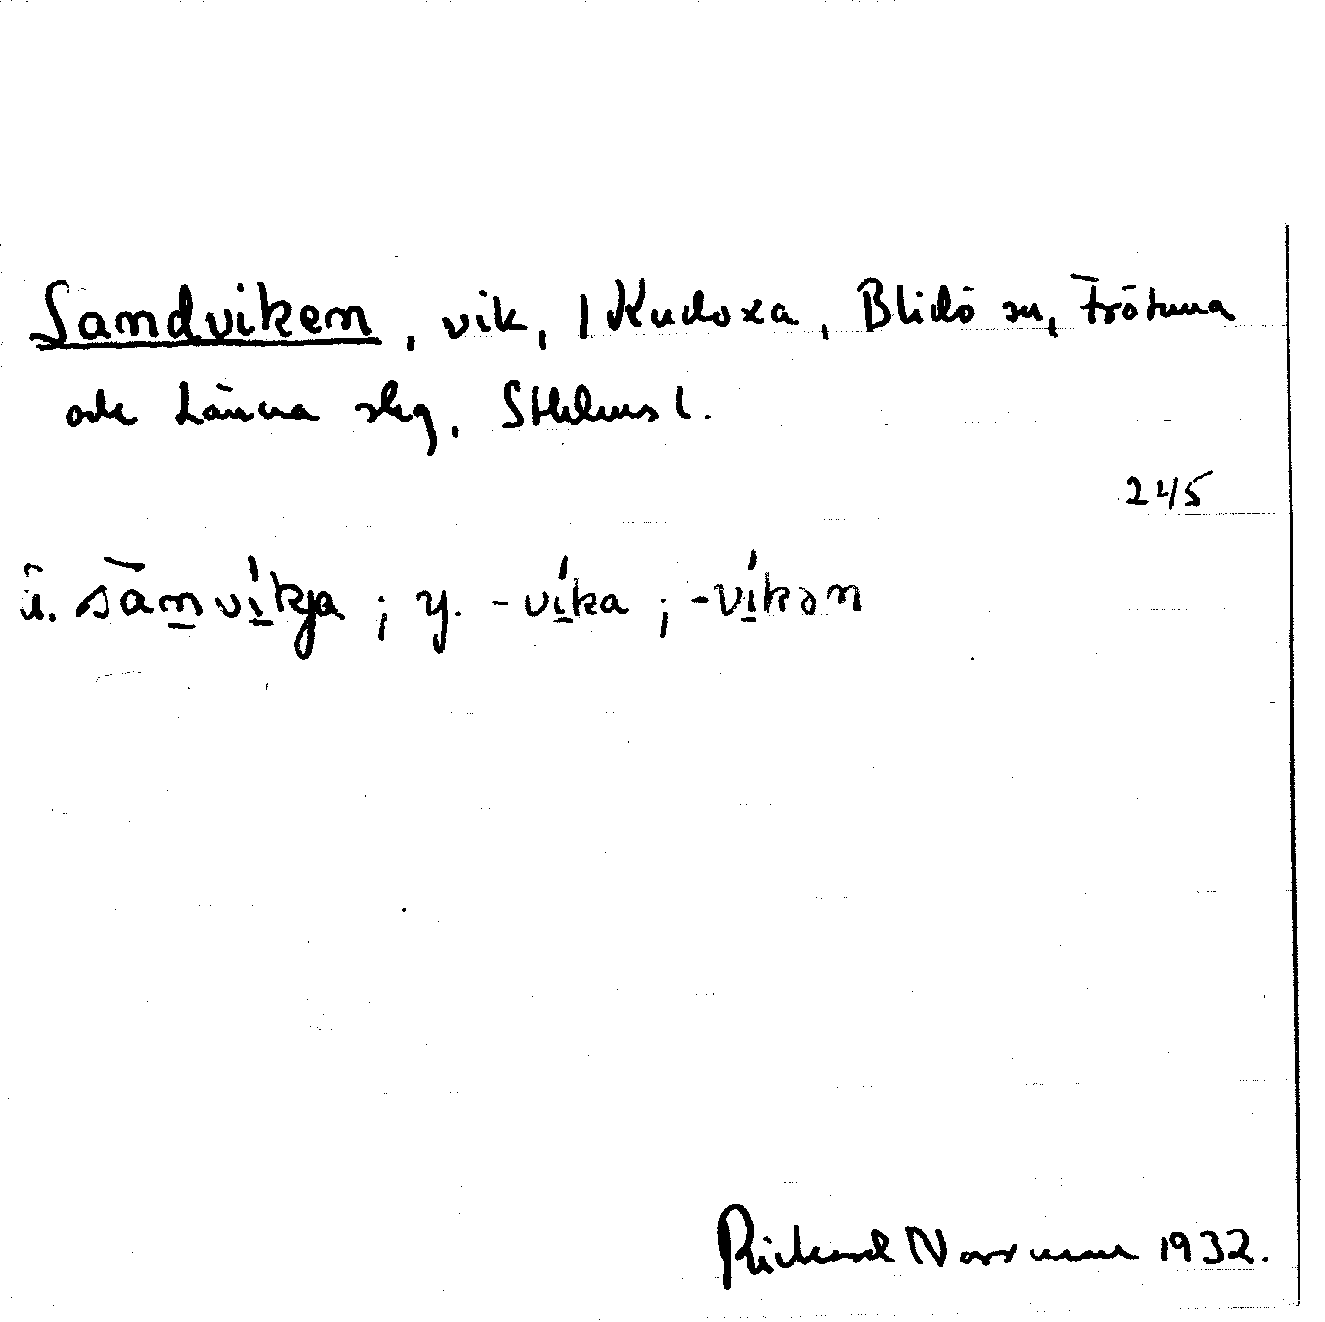 Sandviken, vik, 1 Kudoxa, Blidö sn, Frötuna
och Länna slg, Sthlms l.
245
ä. sänvíkja ; y. -víka ; -víkən
Rickard Norrman 1932.